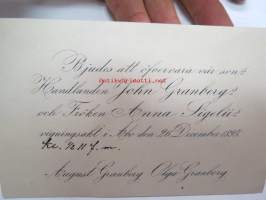 Bjudes att öfvervara vår sons
Handlanden John Granbergs
och Fröken Anna Sigelii
vigningsakt i Åbo den 26 December
Kl. f.m.
August Granberg Olga Granberg